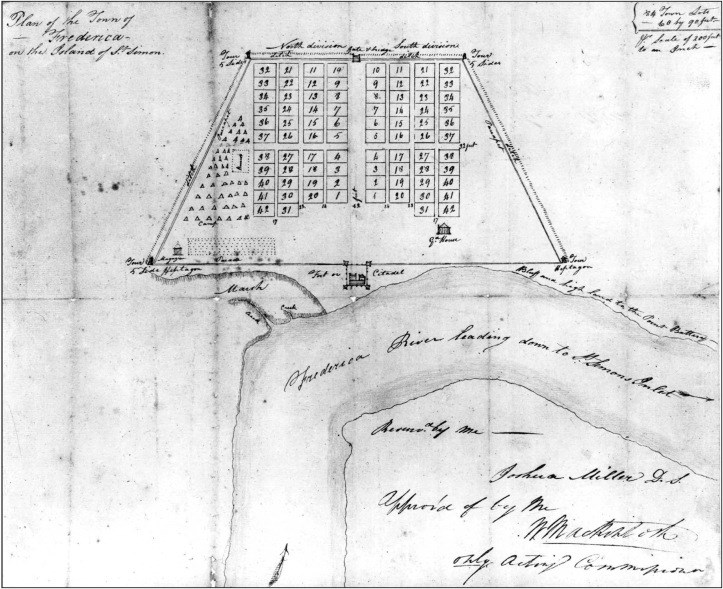 Plan of the Town of
Frederica
on the Island of St. Simon.
84 Town Lots
60 by 90 feet
Scale of 200 feet
to an Inch
North division Gate & bridge South division
Tower ditch ditch Tower
5 Sides 5 Sides
32 21 11 10 10 11 21 32
33 22 12 9 9 12 22 33
34 23 13 8 8 13 23 34
35 24 14 7 7 14 24 35
36 25 15 6 6 15 25 36
37 26 16 5 5 16 26 37
38 27 17 4 4 17 27 38
39 28 18 3 3 18 28 39
40 29 19 2 2 19 29 40
41 30 20 1 1 20 30 41
42 31 31 42
ditch
ditch
Camp
Gd. House
Magazine
Parade
Tower
5 Side Heptagon
Fort or Citadel
Tower
Heptagon
Marsh
Creek
Bluff and high land to the Point Battery
Frederica River leading down to St. Simons Inlet
by me
Joshua Miller D.S.
Approv'd of by Me
W Mackintosh
only Acting Commissioner